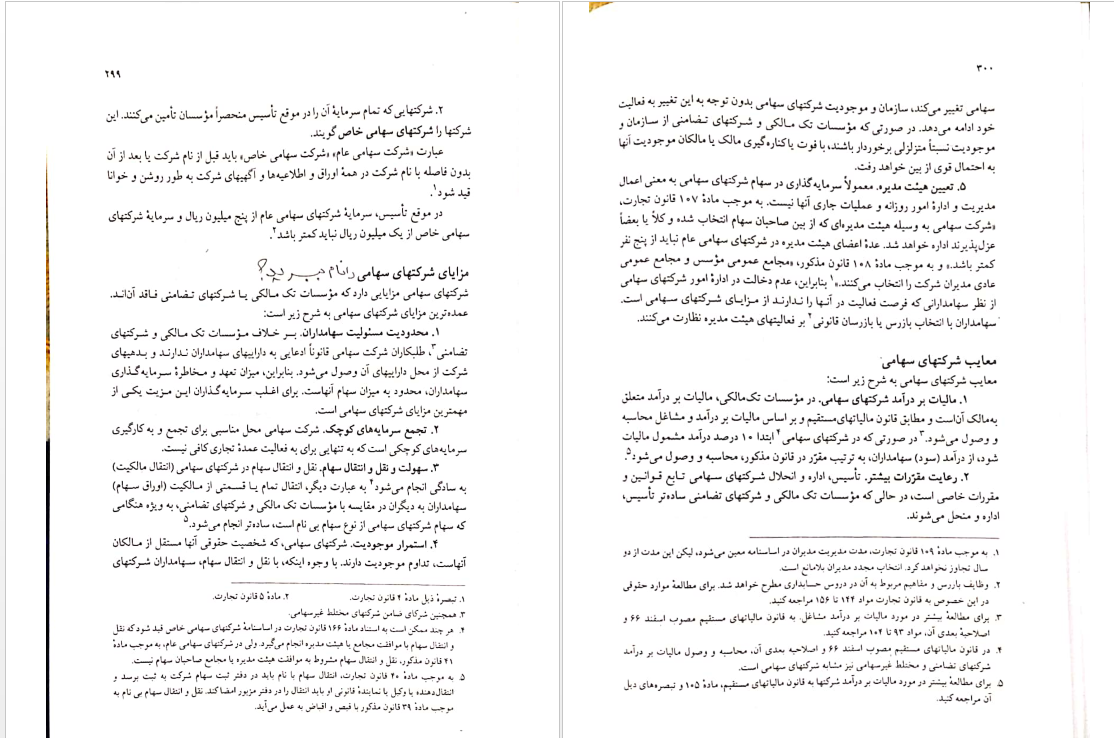 ۲۹۹
۲. شرکتهایی که تمام سرمایهٔ آن را در موقع تأسیس منحصراً مؤسسان تأمین می‌کنند. این
شرکتها را شرکتهای سهامی خاص گویند.
عبارت «شرکت سهامی عام» «شرکت سهامی خاص» باید قبل از نام شرکت یا بعد از آن
بدون فاصله با نام شرکت در همهٔ اوراق و اطلاعیه‌ها و آگهیهای شرکت به طور روشن و خوانا
قید شود۱.
در موقع تأسیس، سرمایهٔ شرکتهای سهامی عام از پنج میلیون ریال و سرمایهٔ شرکتهای
سهامی خاص از یک میلیون ریال نباید کمتر باشد۲.
مزایای شرکتهای سهامی را نام ببرید؟
شرکتهای سهامی مزایایی دارد که مؤسسات تک مالکی یا شرکتهای تضامنی فاقد آن‌اند.
عمده‌ترین مزایای شرکتهای سهامی به شرح زیر است:
۱. محدودیت مسئولیت سهامداران. بر خلاف مؤسسات تک مالکی و شرکتهای
تضامنی۳، طلبکاران شرکت سهامی قانوناً ادعایی به داراییهای سهامداران ندارند و بدهیهای
شرکت از محل داراییهای آن وصول می‌شود. بنابراین، میزان تعهد و مخاطرهٔ سرمایه‌گذاری
سهامداران، محدود به میزان سهام آنهاست. برای اغلب سرمایه‌گذاران این مزیت یکی از
مهمترین مزایای شرکتهای سهامی است.
۲. تجمع سرمایه‌های کوچک. شرکت سهامی محل مناسبی برای تجمع و به کارگیری
سرمایه‌های کوچکی است که به تنهایی برای به فعالیت عمدهٔ تجاری کافی نیست.
۳. سهولت و نقل و انتقال سهام. نقل و انتقال سهام در شرکتهای سهامی (انتقال مالکیت)
به سادگی انجام می‌شود۴ به عبارت دیگر، انتقال تمام یا قسمتی از مالکیت (اوراق سهام)
سهامداران به دیگران در مقایسه با مؤسسات تک مالکی و شرکتهای تضامنی، به ویژه هنگامی
که سهام شرکتهای سهامی از نوع سهام بی نام است، ساده‌تر انجام می‌شود.۵
۴. استمرار موجودیت. شرکتهای سهامی، که شخصیت حقوقی آنها مستقل از مالکان
آنهاست، تداوم موجودیت دارند. با وجود اینکه، با نقل و انتقال سهام، سهامداران شرکتهای
۱. تبصرهٔ ذیل مادهٔ ۴ قانون تجارت. ۲. مادهٔ ۵ قانون تجارت.
۳. همچنین شرکای ضامن شرکتهای مختلط غیرسهامی.
۴. هر چند ممکن است به استناد مادهٔ ۱۶۶ قانون تجارت در اساسنامهٔ شرکتهای سهامی خاص قید شود که نقل
و انتقال سهام با موافقت مجامع یا هیئت مدیره انجام می‌گیرد. ولی در شرکتهای سهامی عام، به موجب مادهٔ
۴۱ قانون مذکور، نقل و انتقال سهام مشروط به موافقت هیئت مدیره یا مجامع صاحبان سهام نیست.
۵. به موجب مادهٔ ۴۰ قانون تجارت، انتقال سهام با نام باید در دفتر ثبت سهام شرکت به ثبت برسد و
انتقال‌دهنده یا وکیل یا نمایندهٔ قانونی او باید انتقال را در دفتر مزبور امضا کند. نقل و انتقال سهام بی نام به
موجب مادهٔ ۳۹ قانون مذکور با قبض و اقباض به عمل می‌آید.
۳۰۰
سهامی تغییر می‌کند، سازمان و موجودیت شرکتهای سهامی بدون توجه به این تغییر به فعالیت
خود ادامه می‌دهد. در صورتی که مؤسسات تک مالکی و شرکتهای تضامنی از سازمان و
موجودیت نسبتاً متزلزلی برخوردار باشند، با فوت یا کناره‌گیری مالک یا مالکان موجودیت آنها
به احتمال قوی از بین خواهد رفت.
۵. تعیین هیئت مدیره. معمولاً سرمایه‌گذاری در سهام شرکتهای سهامی به معنی اعمال
مدیریت و ادارهٔ امور روزانه و عملیات جاری آنها نیست. به موجب مادهٔ ۱۰۷ قانون تجارت،
«شرکت سهامی به وسیله هیئت مدیره‌ای که از بین صاحبان سهام انتخاب شده و کلاً یا بعضاً
عزل‌پذیرند اداره خواهد شد. عدهٔ اعضای هیئت مدیره در شرکتهای سهامی عام نباید از پنج نفر
کمتر باشد.» و به موجب مادهٔ ۱۰۸ قانون مذکور، «مجامع عمومی مؤسس و مجامع عمومی
عادی مدیران شرکت را انتخاب می‌کنند.»۱ بنابراین، عدم دخالت در ادارهٔ امور شرکتهای سهامی
از نظر سهامدارانی که فرصت فعالیت در آنها را ندارند از مزایای شرکتهای سهامی است.
سهامداران با انتخاب بازرس یا بازرسان قانونی۲ بر فعالیتهای هیئت مدیره نظارت می‌کنند.
معایب شرکتهای سهامی
معایب شرکتهای سهامی به شرح زیر است:
۱. مالیات بر درآمد شرکتهای سهامی. در مؤسسات تک‌مالکی، مالیات بر درآمد متعلق
به‌مالک آن‌است و مطابق قانون مالیاتهای‌مستقیم و بر اساس مالیات بر درآمد و مشاغل محاسبه
و وصول می‌شود.۳ در صورتی که در شرکتهای سهامی۴ ابتدا ۱۰ درصد درآمد مشمول مالیات
شود، از درآمد (سود) سهامداران، به ترتیب مقرّر در قانون مذکور، محاسبه و وصول می‌شود۵.
۲. رعایت مقرّرات بیشتر. تأسیس، اداره و انحلال شرکتهای سهامی تابع قوانین و
مقررات خاصی است، در حالی که مؤسسات تک مالکی و شرکتهای تضامنی ساده‌تر تأسیس،
اداره و منحل می‌شوند.
۱. به موجب مادهٔ ۱۰۹ قانون تجارت، مدت مدیریت مدیران در اساسنامه معین می‌شود، لیکن این مدت از دو
سال تجاوز نخواهد کرد. انتخاب مجدد مدیران بلامانع است.
۲. وظایف بازرس و مفاهیم مربوط به آن در دروس حسابداری مطرح خواهد شد. برای مطالعهٔ موارد حقوقی
در این خصوص به قانون تجارت مواد ۱۴۴ تا ۱۵۶ مراجعه کنید.
۳. برای مطالعهٔ بیشتر در مورد مالیات بر درآمد مشاغل. به قانون مالیاتهای مستقیم مصوب اسفند ۶۶ و
اصلاحیهٔ بعدی آن، مواد ۹۳ تا ۱۰۴ مراجعه کنید.
۴. در قانون مالیاتهای مستقیم مصوب اسفند ۶۶ و اصلاحیه بعدی آن، محاسبه و وصول مالیات بر درآمد
شرکتهای تضامنی و مختلط غیرسهامی نیز مشابه شرکتهای سهامی است.
۵. برای مطالعهٔ بیشتر در مورد مالیات بر درآمد شرکتها به قانون مالیاتهای مستقیم، مادهٔ ۱۰۵ و تبصره‌های ذیل
آن مراجعه کنید.